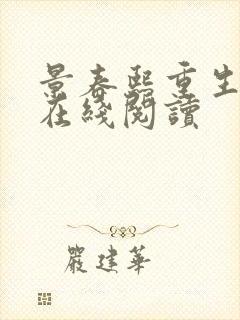 景春熙重生
在綫閱讀
嚴建華